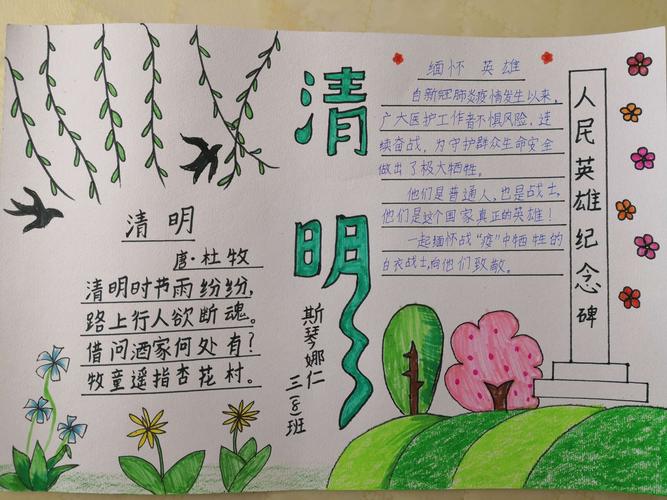 清明
清明
唐·杜牧
清明时节雨纷纷，
路上行人欲断魂。
借问酒家何处有？
牧童遥指杏花村。
斯琴娜仁
三（8）班
缅怀 英雄
自新冠肺炎疫情发生以来，
广大医护工作者不惧风险，连
续奋战，为守护群众生命安全
做出了极大牺牲。
他们是普通人，也是战士，
他们是这个国家真正的英雄！
一起缅怀战“疫”中牺牲的
白衣战士，向他们致敬。
人民英雄纪念碑